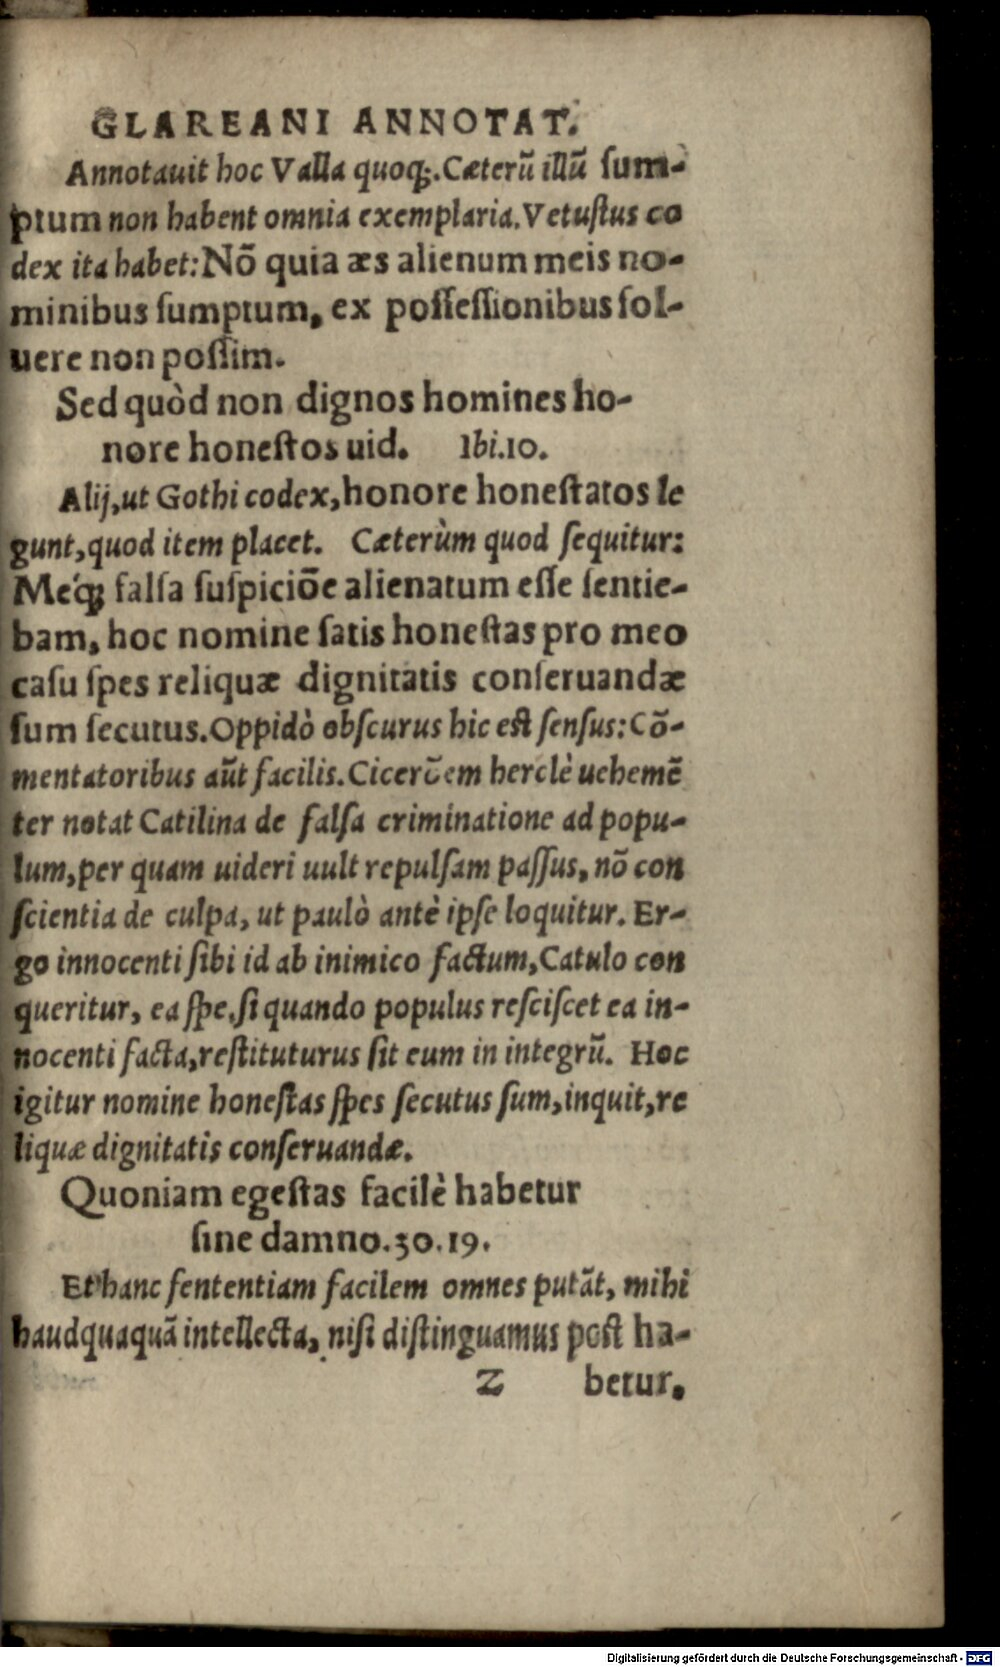 GLAREANI ANNOTAT.
Annotauit hoc Valla quoq;. Cæterũ illũ sum-
ptum non habent omnia exemplaria. Vetustus co
dex ita habet: Nõ quia æs alienum meis no-
minibus sumptum, ex possessionibus sol-
uere non possim.
Sed quòd non dignos homines ho-
nore honestos uid. Ibi.10.
Alij, ut Gothi codex, honore honestatos le
gunt, quod item placet. Cæterùm quod sequitur:
Méq; falsa suspiciõe alienatum esse sentie-
bam, hoc nomine satis honestas pro meo
casu spes reliquæ dignitatis conseruandæ
sum secutus. Oppidò obscurus hic est sensus: Cõ-
mentatoribus aũt facilis. Cicerõem herclè uehemẽ
ter notat Catilina de falsa criminatione ad popu-
lum, per quam uideri uult repulsam passus, nõ con
scientia de culpa, ut paulò antè ipse loquitur. Er-
go innocenti sibi id ab inimico factum, Catulo con
queritur, ea spe, si quando populus resciscet ea in-
nocenti facta, restituturus sit eum in integrũ. Hoc
igitur nomine honestas spes secutus sum, inquit, re
liquæ dignitatis conseruandæ.
Quoniam egestas facilè habetur
sine damno.30.19.
Et hanc sententiam facilem omnes putãt, mihi
haudquaquã intellecta, nisi distinguamus post ha-
Z betur.
Digitalisierung gefördert durch die Deutsche Forschungsgemeinschaft - DFG